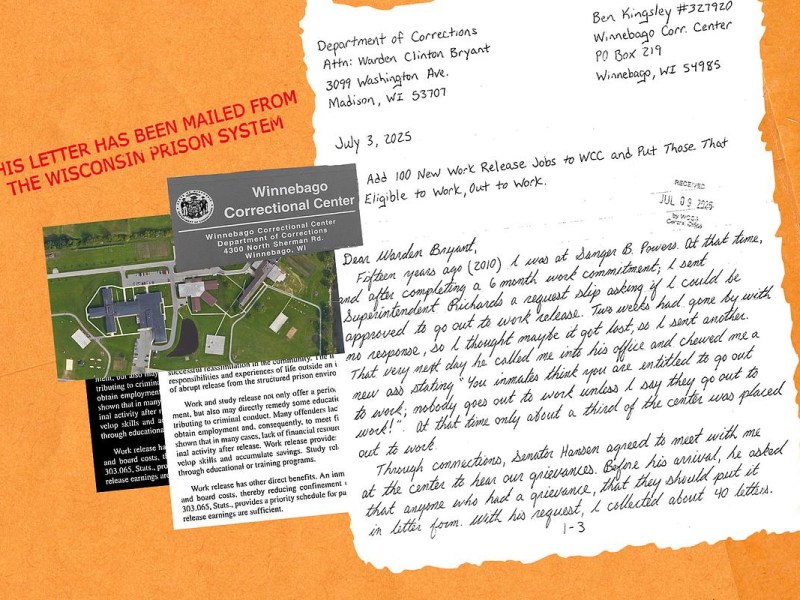 HIS LETTER HAS BEEN MAILED FROM
THE WISCONSIN PRISON SYSTEM
Department of Corrections
Attn: Warden Clinton Bryant
3099 Washington Ave.
Madison, WI 53707
Ben Kingsley #327920
Winnebago Corr. Center
PO Box 219
Winnebago, WI 54985
July 3, 2025
Add 100 New Work Release Jobs to WCC and Put Those That
Eligible to Work, Out to Work.
RECEIVED
JUL 09 2025
Dear Warden Bryant,
Fifteen years ago (2010) I was at Sanger B. Powers. At that time,
and after completing a 6 month work commitment; I sent
Superintendent Richards a request slip asking if I could be
approved to go out to work release. Two weeks had gone by with
no response, so I thought maybe it got lost, so I sent another.
That very next day he called me into his office and chewed me a
new ass stating "You inmates think you are entitled to go out
to work; nobody goes out to work unless I say they go out to
work!". At that time only about a third of the center was placed
out to work.
Through connections, Senator Hansen agreed to meet with me
at the center to hear our grievances. Before his arrival, he asked
that anyone who had a grievance, that they should put it
in letter form. With his request, I collected about 40 letters.
1-3
Winnebago
Correctional Center
Winnebago Correctional Center
Department of Corrections
4300 North Sherman Rd.
Winnebago, WI
successful reassimilation in the community. The
responsibilities and experiences of life outside an
of abrupt release from the structured prison enviro
Work and study release not only offer a perio
ment, but also may directly remedy some educati
tributing to criminal conduct. Many offenders lac
obtain employment and, consequently, to meet fi
shown that in many cases, lack of financial resour
inal activity after release. Work release provide
velop skills and accumulate savings. Study rel
through educational or training programs.
Work release has other direct benefits. An inm
and board costs, thereby reducing confinement
303.065, Stats., provides a priority schedule for pa
release earnings are sufficient.
ment, but also may
tributing to criminal
obtain employment
shown that in many
inal activity after
velop skills and a
through educational
Work release ha
and board costs, t
303.065, Stats., prov
release earnings are